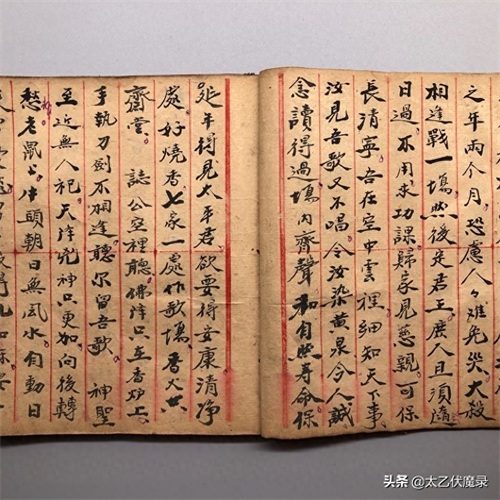 之年兩个月恐慮人々難免災大殺
相逢戰一場然後来君王庶人且須隨
日過不用求功課歸家見慈親可保
長清寧吾在空中雲裡細知天下事
汝見吾歌又不唱令汝染黄泉令人誠
念讀得過場内齊聲和自然壽命保
延年得見太平君欲要得安康清净
處好燒香七家一處作歌場香火共
齋堂誌公空裡聽佛降只至香炉上
手執刀剑不相逢聽尔留吾歌神聖
至近無人祀天降咒神只更加向後轉
愁老鼠上牛頭朝日無風水自動日
头条 @太乙伏魔录